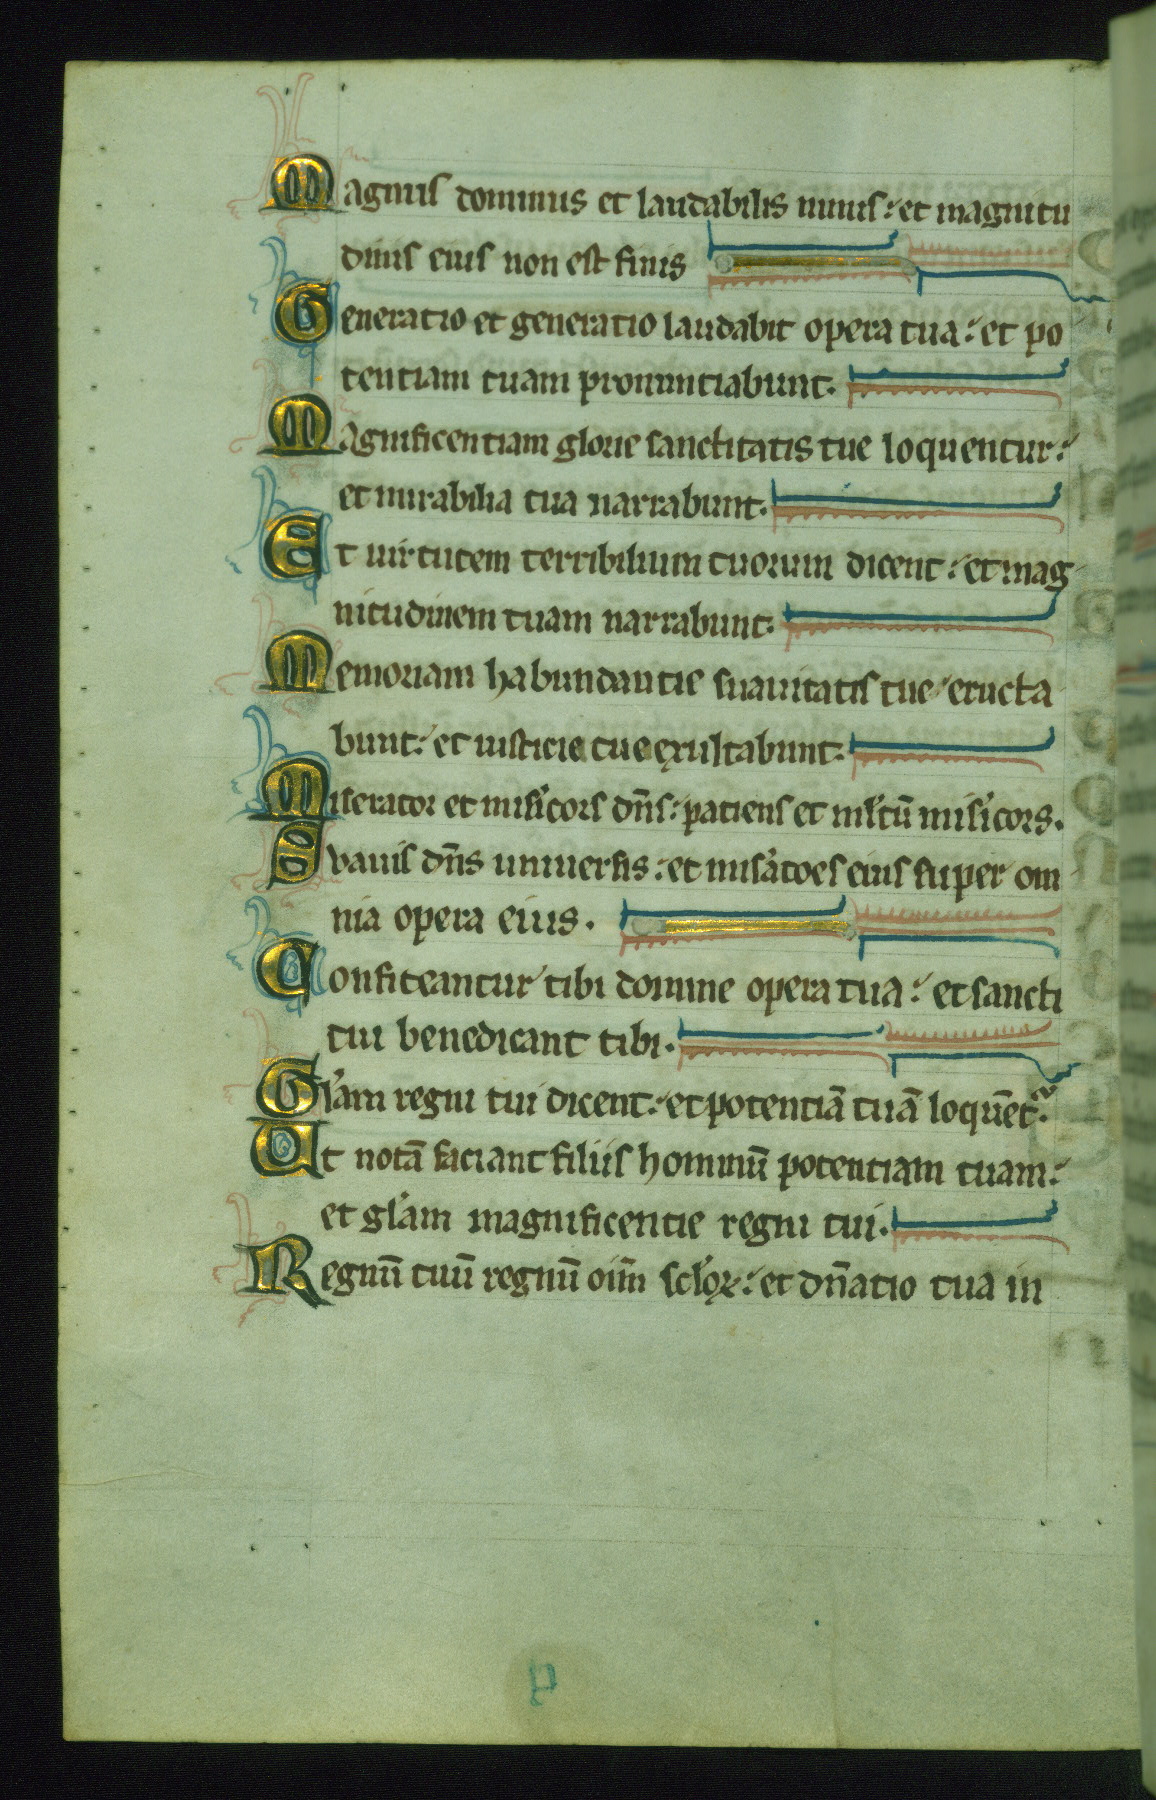 Magnus dominus et laudabilis nimis: et magnitu
dinis eius non est finis
Generatio et generatio laudabit opera tua: et po
tentiam tuam pronuntiabunt.
Magnificentiam glorie sanctitatis tue loquentur:
et mirabilia tua narrabunt.
Et uirtutem terribilium tuorum dicent: et mag
nitudinem tuam narrabunt.
Memoriam habundantie suauitatis tue eructa
bunt: et iusticia tue exultabunt.
Miserator et mis̓icors dn̄s: patiens et ml̓tū mis̓icors.
Suauis dn̄s uniuersis: et mis̓atōes eius super om
nia opera eius.
Confiteantur tibi domine opera tua: et sancti
tui benedicant tibi.
Gl̓am regni tui dicent: et potentiā tuā loquēt᷑.
Ut notā faciant filiis hominū potentiam tuam:
et gl̓am magnificentie regni tui.
Regnū tuū regnū oīm scl̓oꝝ: et dn̄atio tua in